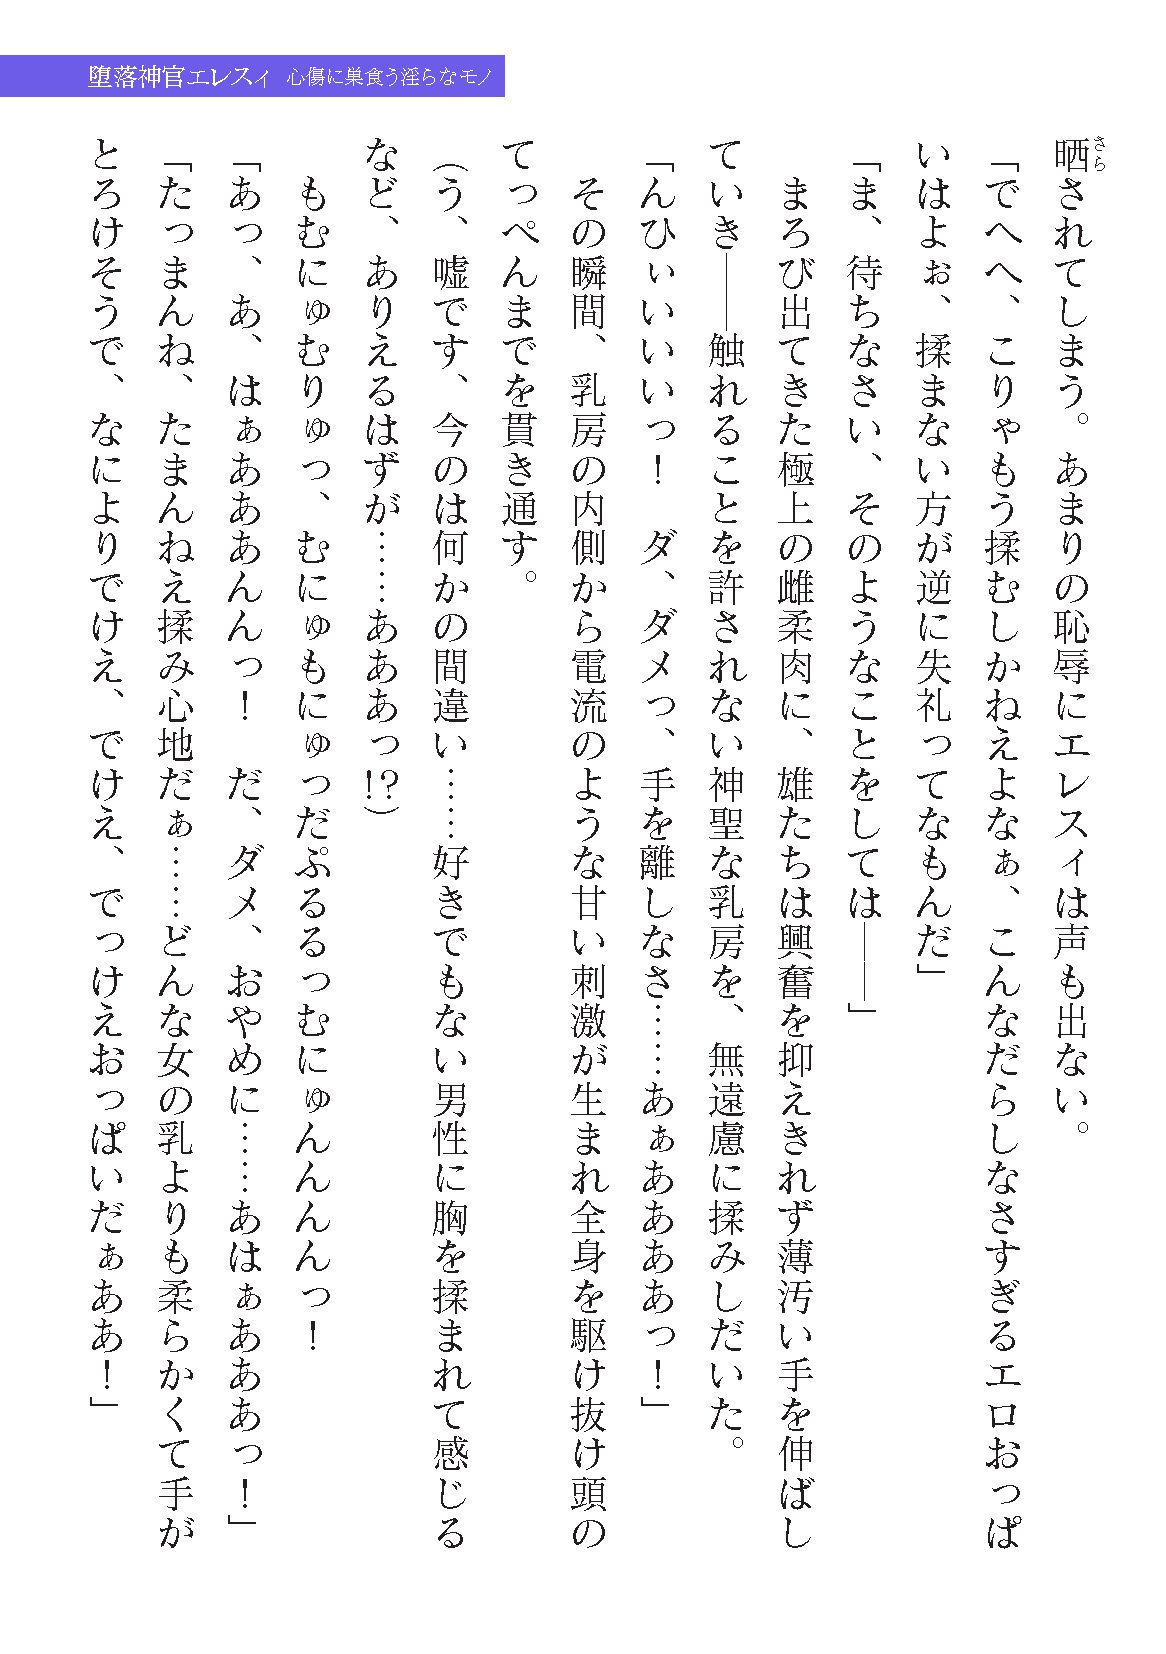 堕落神官エレスィ 心傷に巣食う淫らなモノ
晒されてしまう。あまりの恥辱にエレスィは声も出ない。
さら
「でへへ、こりゃもう揉むしかねえよなぁ、こんなだらしなさすぎるエロおっぱ
いはよぉ、揉まない方が逆に失礼ってなもんだ」
「ま、待ちなさい、そのようなことをしては――」
　まろび出てきた極上の雌柔肉に、雄たちは興奮を抑えきれず薄汚い手を伸ばし
ていき――触れることを許されない神聖な乳房を、無遠慮に揉みしだいた。
「んひぃいいいっ！　ダ、ダメっ、手を離しなさ……あぁああああっ！」
　その瞬間、乳房の内側から電流のような甘い刺激が生まれ全身を駆け抜け頭の
てっぺんまでを貫き通す。
（う、嘘です、今のは何かの間違い……好きでもない男性に胸を揉まれて感じる
など、ありえるはずが……あああっ!?）
　もむにゅむりゅっ、むにゅもにゅっだぷるるっむにゅんんんんっ！
「あっ、あ、はぁあああんんっ！　だ、ダメ、おやめに……あはぁあああっ！」
「たっまんね、たまんねえ揉み心地だぁ……どんな女の乳よりも柔らかくて手が
とろけそうで、なによりでけえ、でけえ、でっけえおっぱいだぁああ！」